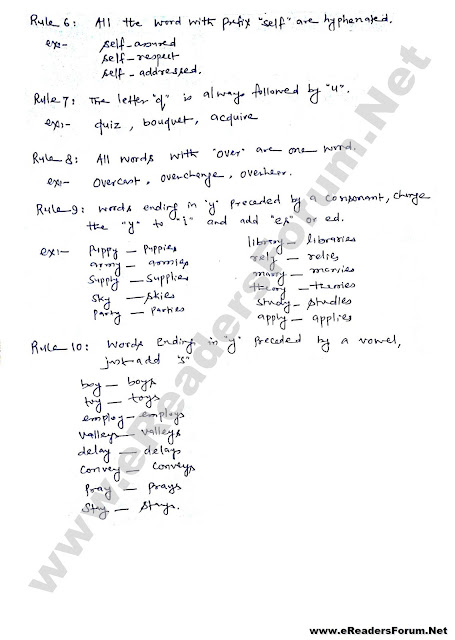 Rule 6: All the word with prefix "self" are hyphenated.
ex:- self-assured
self-respect
self-addressed.
Rule 7: The letter "q" is always followed by "u".
ex:- quiz, bouquet, acquire
Rule 8: All words with "over" are one word.
ex:- overcast, overcharge, overhear.
Rule 9: words ending in "y" preceded by a consonant, change
the "y" to "i" and add "es" or ed.
ex:- Puppy - Puppies
army - armies
Supply - Supplies
Sky - Skies
Party - Parties
library - libraries
rely - relies
marry - marries
theory - theories
study - studies
apply - applies
Rule 10: Words Ending in "y" Preceded by a vowel,
just add "s"
boy - boys
toy - toys
employ - employs
valleys - valleys
delay - delays
convey - conveys
Pray - Prays
Stay - Stays.
www.eReadersForum.Net
www.eReadersForum.Net